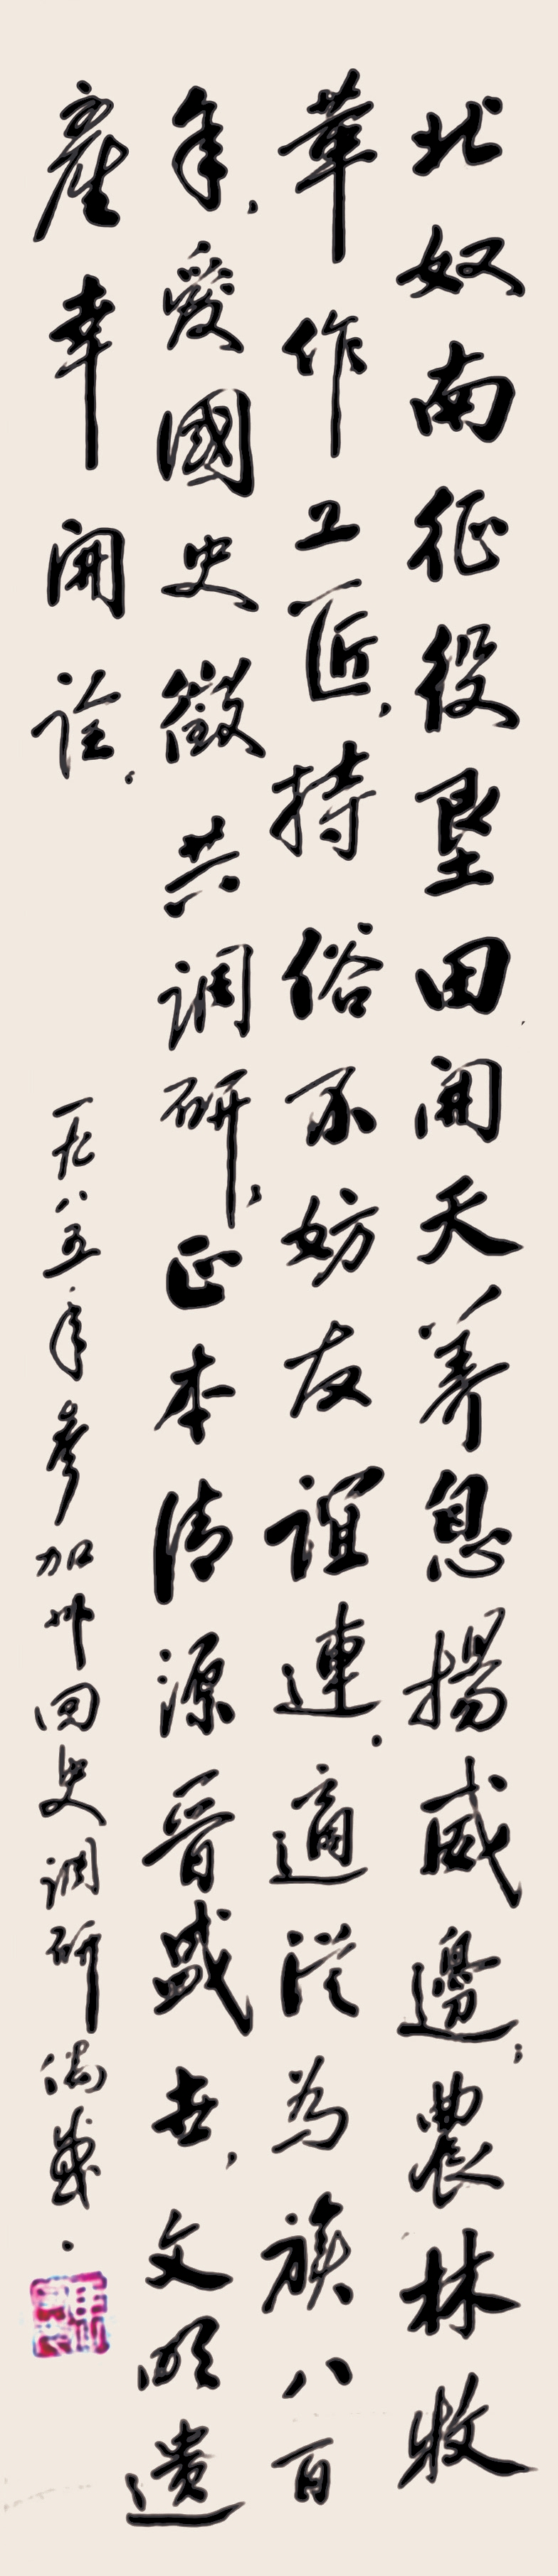 北奴南征役垦田開天养息揚威邊；農林牧
華作工匠，持俗不妨友誼連．適從為族八百
年，愛國史徵共调研；正本清源晋盛世，文明遗
產幸開诠．
一九八五年参加州回史调研偶感．